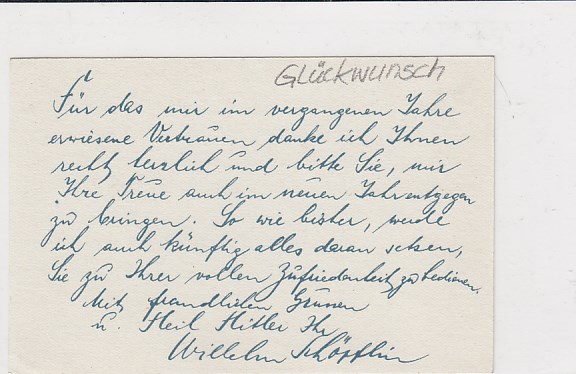 Glückwunsch
Für das mir im vergangenen Jahre
erwiesene Vertrauen danke ich Ihnen
recht herzlich und bitte Sie, mir
Ihre Treue auch im neuen Jahr entgegen
zu bringen. So wie bisher, werde
ich auch künftig alles daran setzen,
Sie zu Ihrer vollen Zufriedenheit zu bedienen.
Mit freundlichen Grüssen
u. Heil Hitler Ihr
Wilhelm Schöpflin